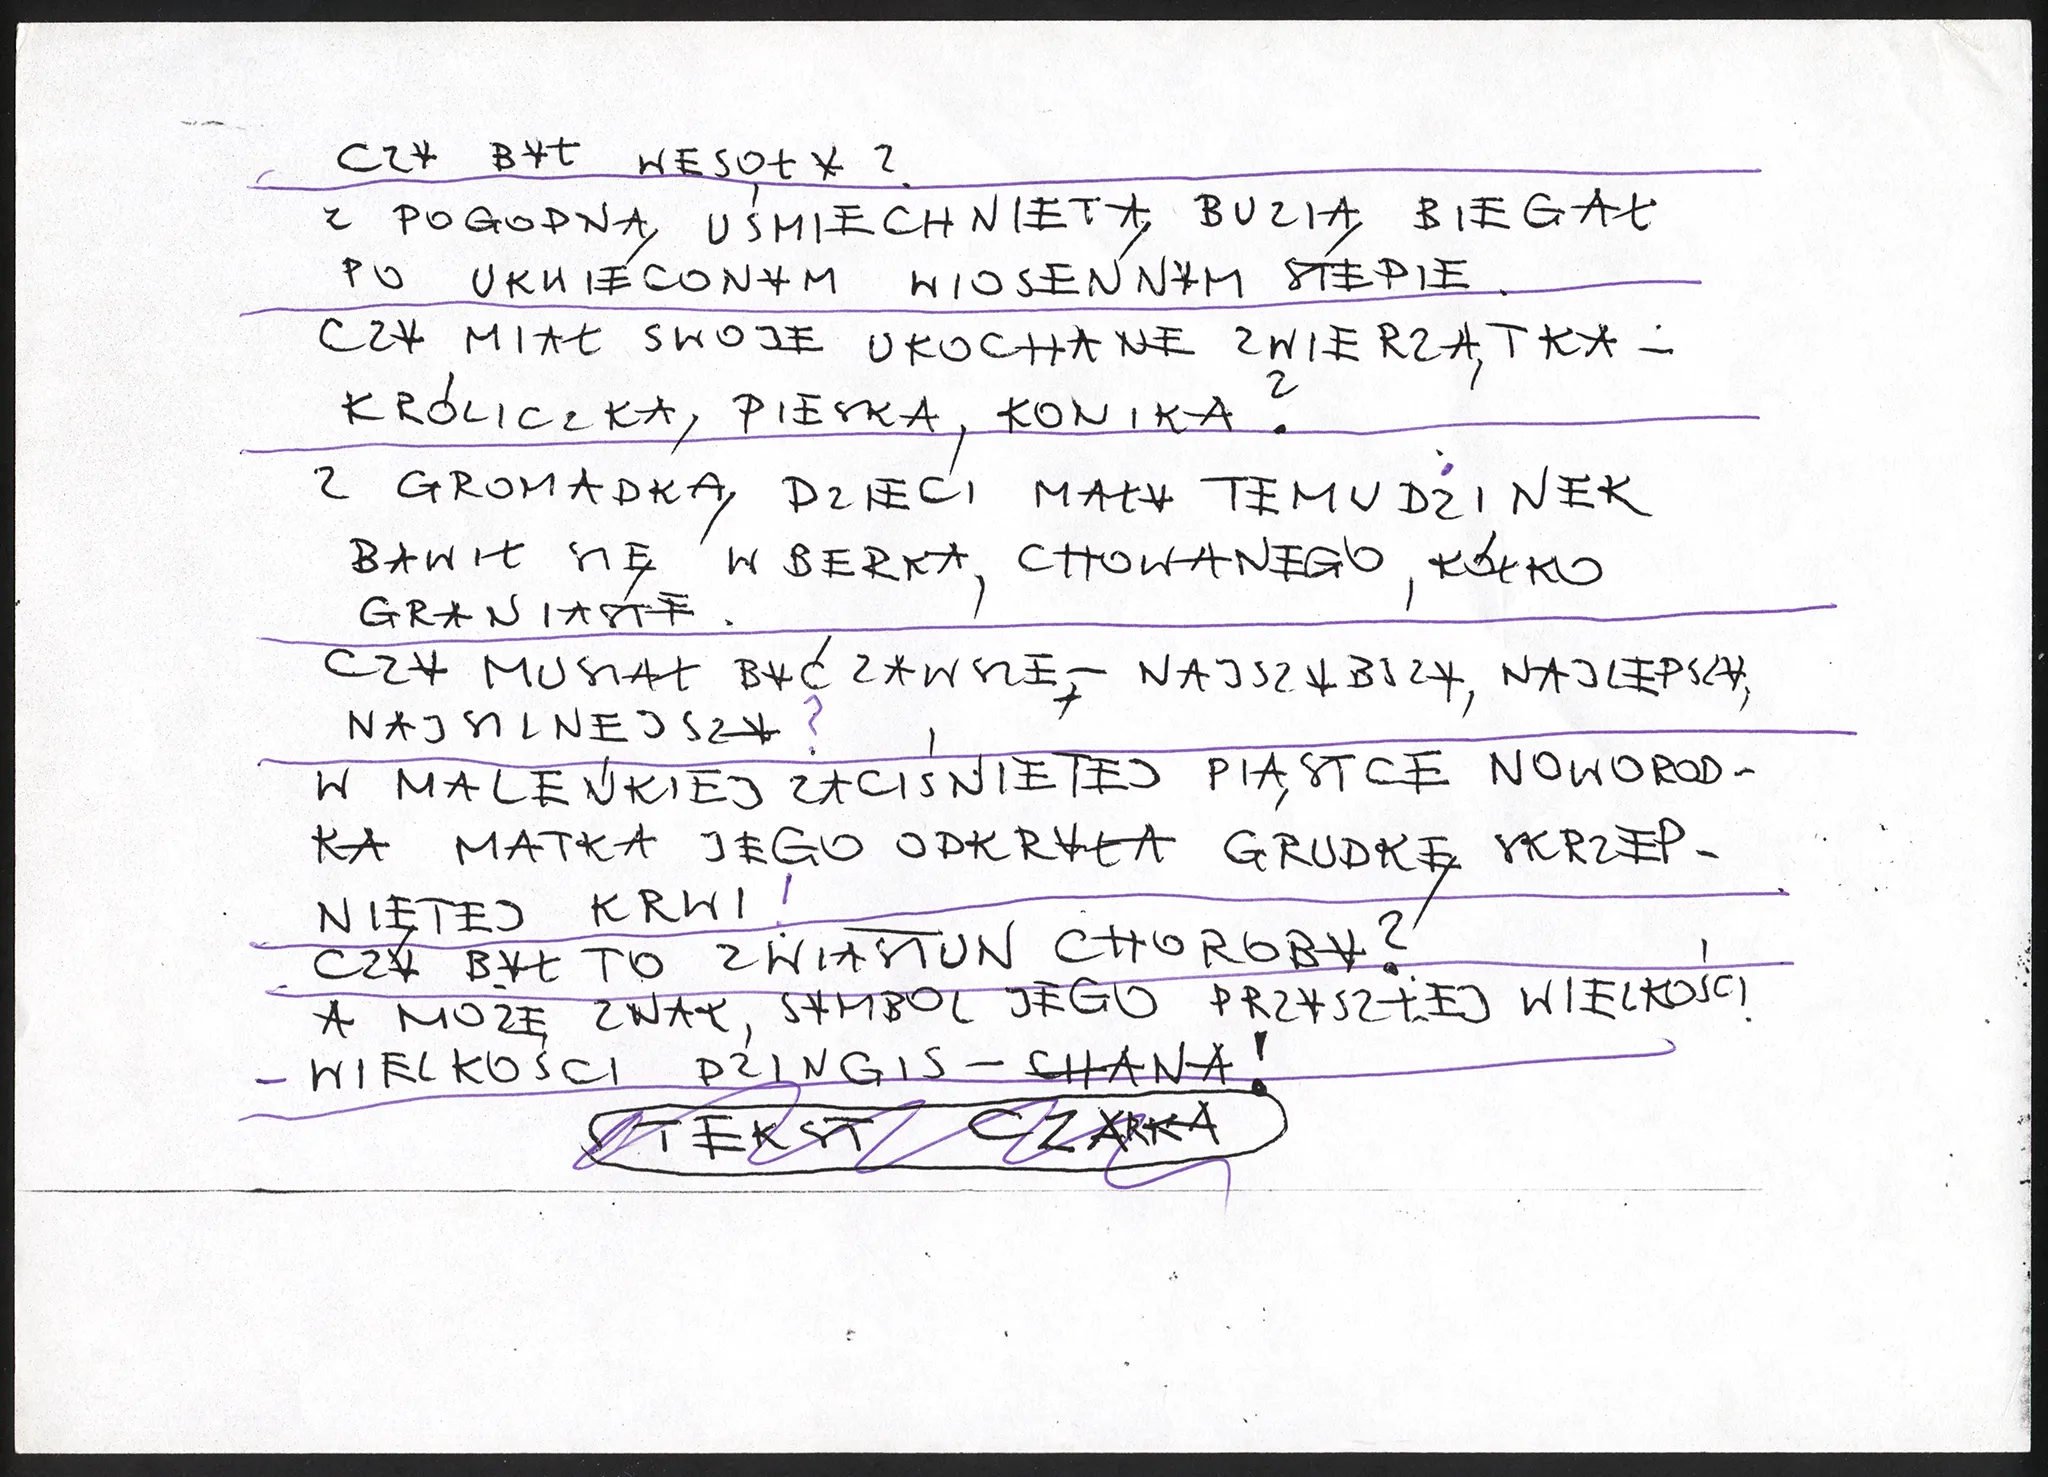 CZY BYŁ WESOŁY?
Z POGODNĄ, UŚMIECHNIĘTĄ BUZIĄ BIEGAŁ
PO UKWIECONYM WIOSENNYM STEPIE.
CZY MIAŁ SWOJE UKOCHANE ZWIERZĄTKA –
KRÓLICZKA, PIESKA, KONIKA?
Z GROMADKĄ DZIECI MAŁY TEMUDŻINEK
BAWIŁ SIĘ W BERKA, CHOWANEGO, KÓŁKO
GRANIASTE.
CZY MUSIAŁ BYĆ ZAWSZE – NAJSZYBSZY, NAJLEPSZY,
NAJSILNEJSZY?
W MALEŃKIEJ ZACIŚNIĘTEJ PIĄSTCE NOWOROD-
KA MATKA JEGO ODKRYŁA GRUDKĘ SKRZEP-
NIĘTEJ KRWI!
CZY BYŁ TO ZWIASTUN CHOROBY?
A MOŻE ZNAK, SYMBOL JEGO PRZYSZŁEJ WIELKOŚCI
– WIELKOŚCI DŻINGIS – CHANA!
TEKST CZARKA